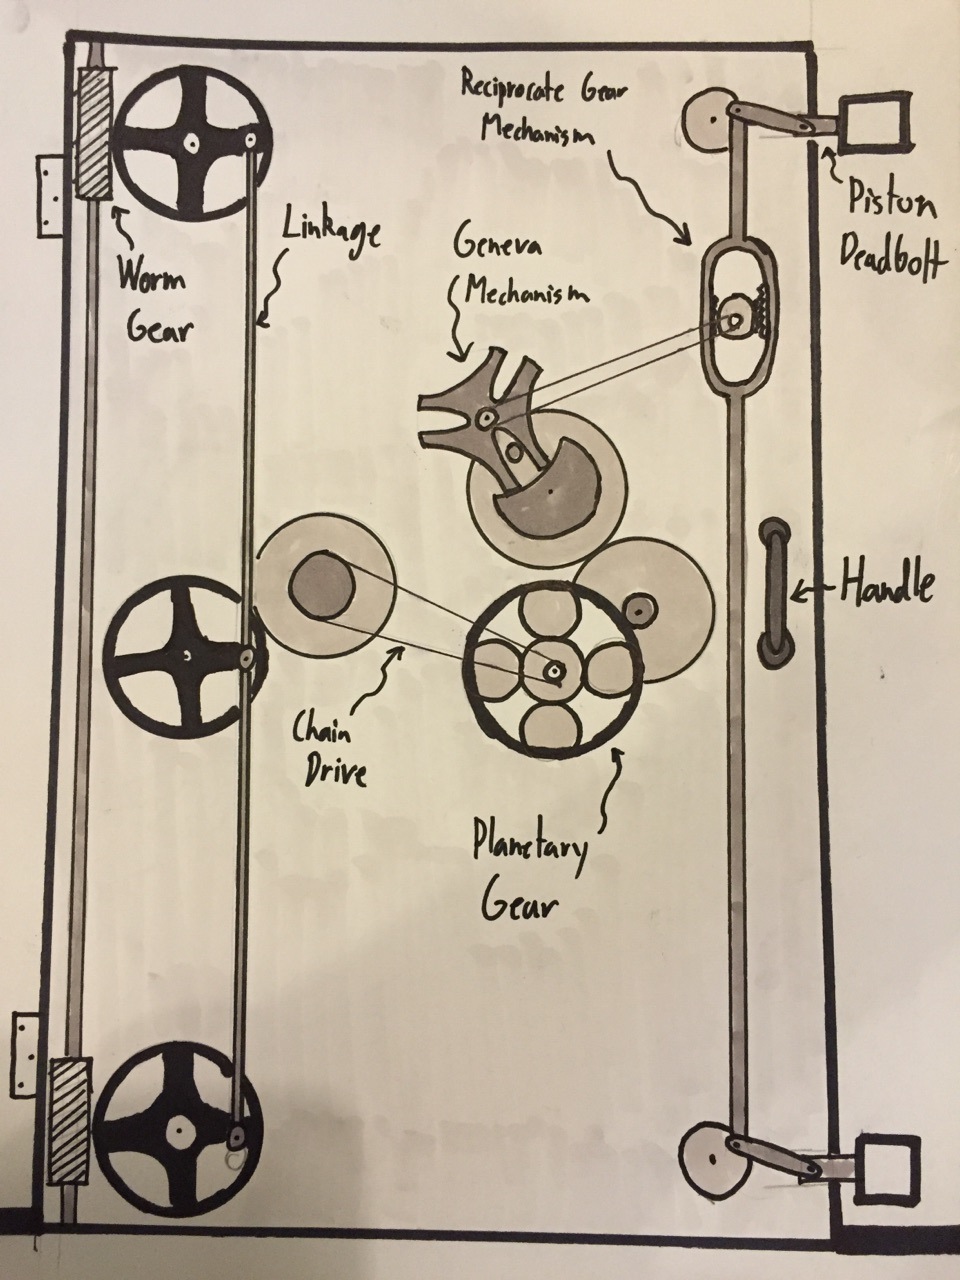 Reciprocate Gear
Mechanism
Piston
Deadbolt
Linkage
Geneva
Mechanism
Worm
Gear
Handle
Chain
Drive
Planetary
Gear